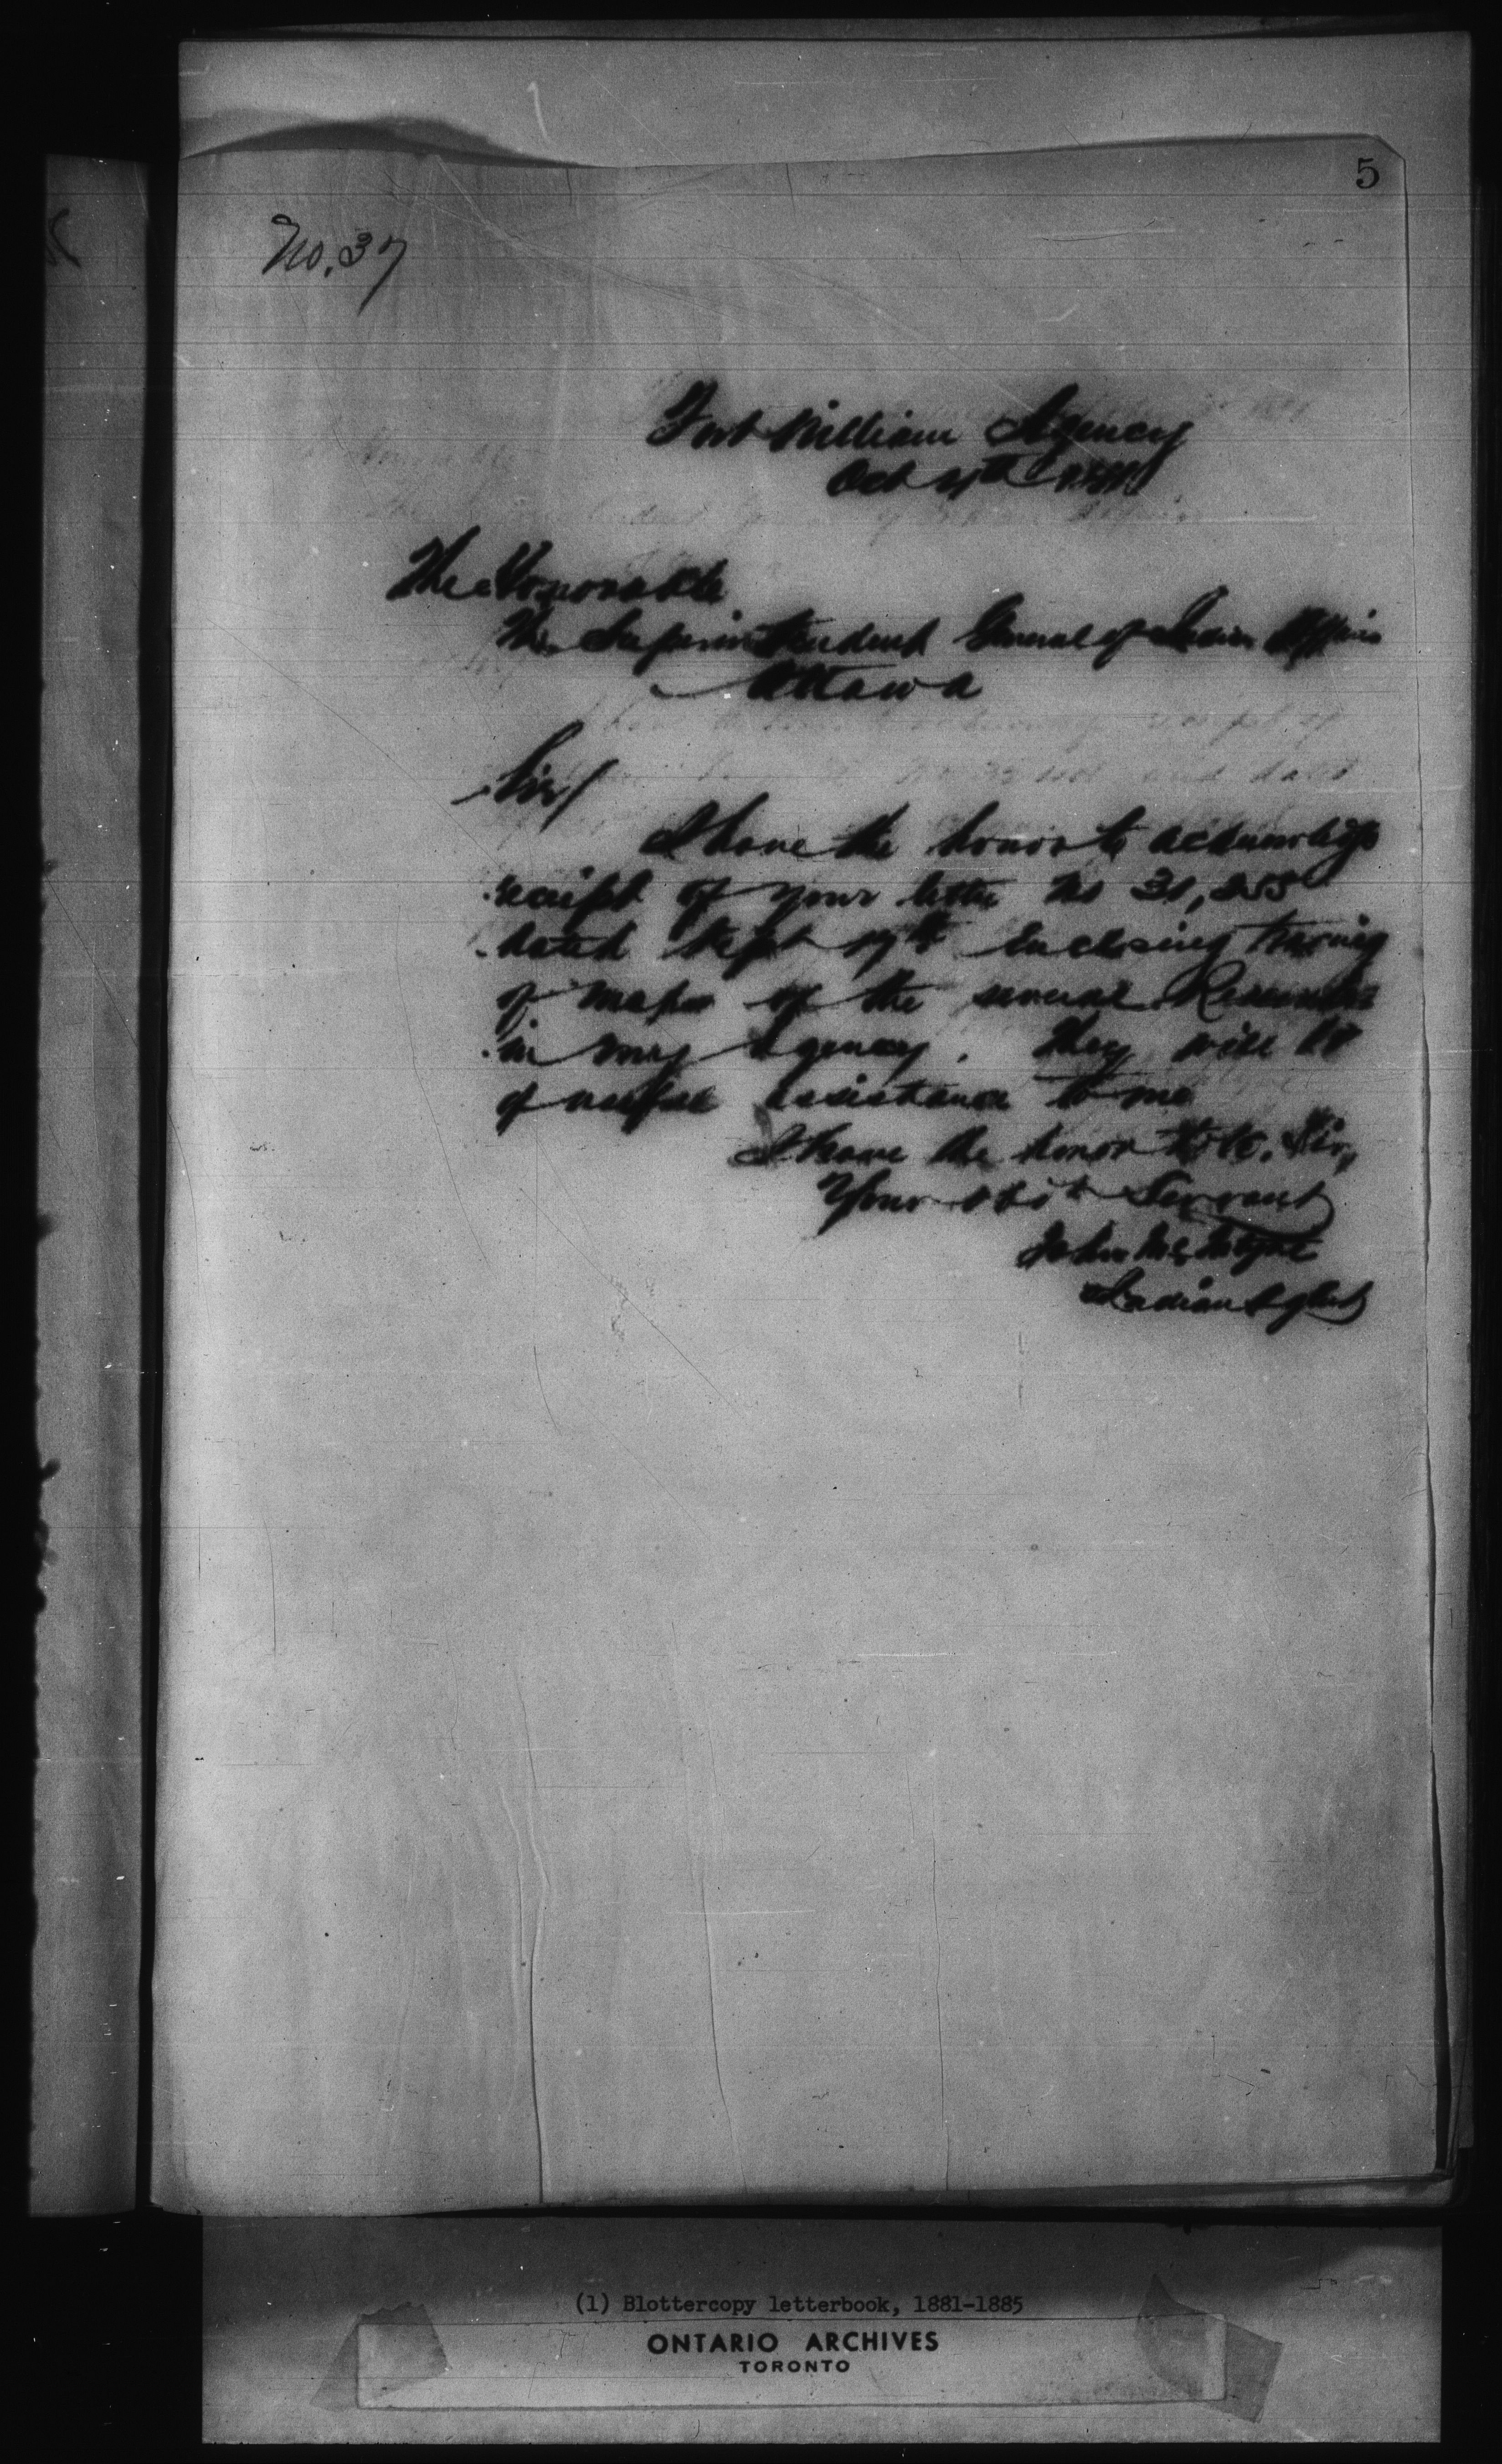 5
No. 37
Fort William Agency
Oct 4th 1881
The Honorable
The Superintendent General of Indian Affairs
Ottawa
Sir/
I have the honor to acknowledge
receipt of your letter No 31,255
dated Sept 19th Enclosing tracing
of maps of the several Reserves
in my Agency. They will be
of useful assistance to me
I have the honor to be, Sir,
Your obt Servant
John McIntyre
Indian Agent
(1) Blottercopy letterbook, 1881-1885
ONTARIO ARCHIVES
TORONTO